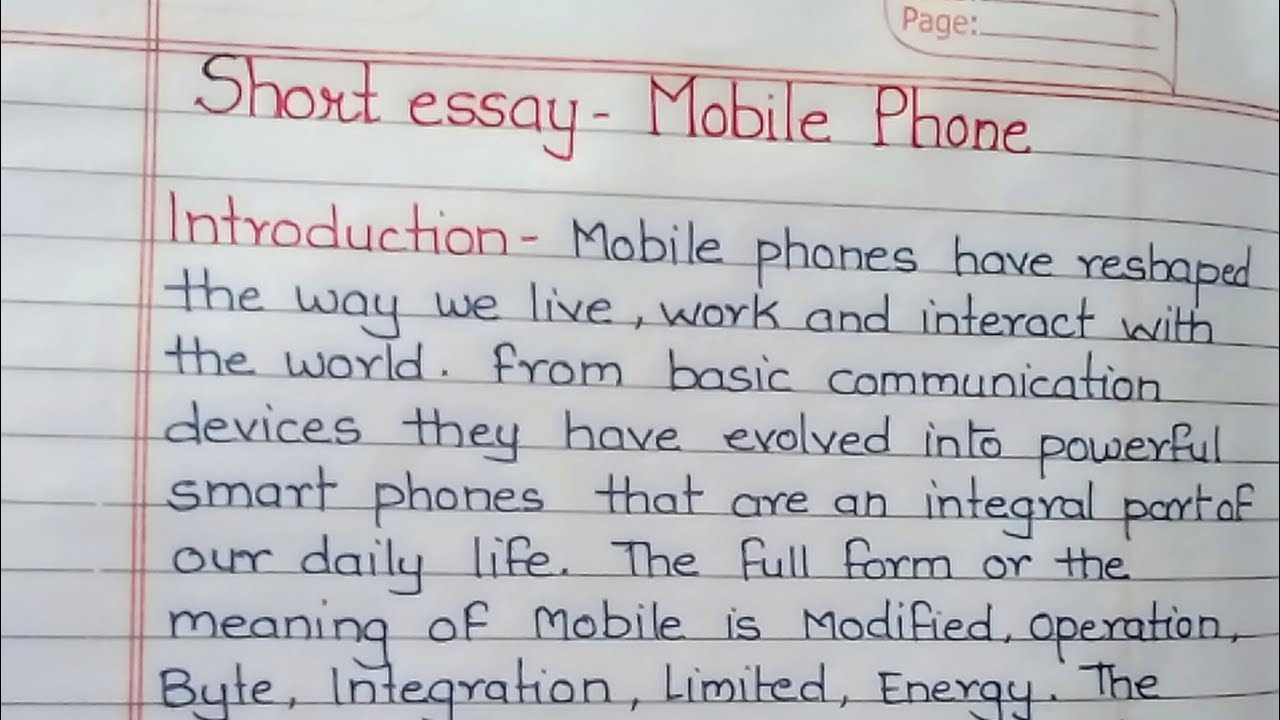 Page:
Short essay - Mobile Phone
Introduction - Mobile phones have reshaped
the way we live, work and interact with
the world. from basic communication
devices they have evolved into powerful
smart phones that are an integral part of
our daily life. The full form or the
meaning of Mobile is Modified, Operation,
Byte, Integration, Limited, Energy. The